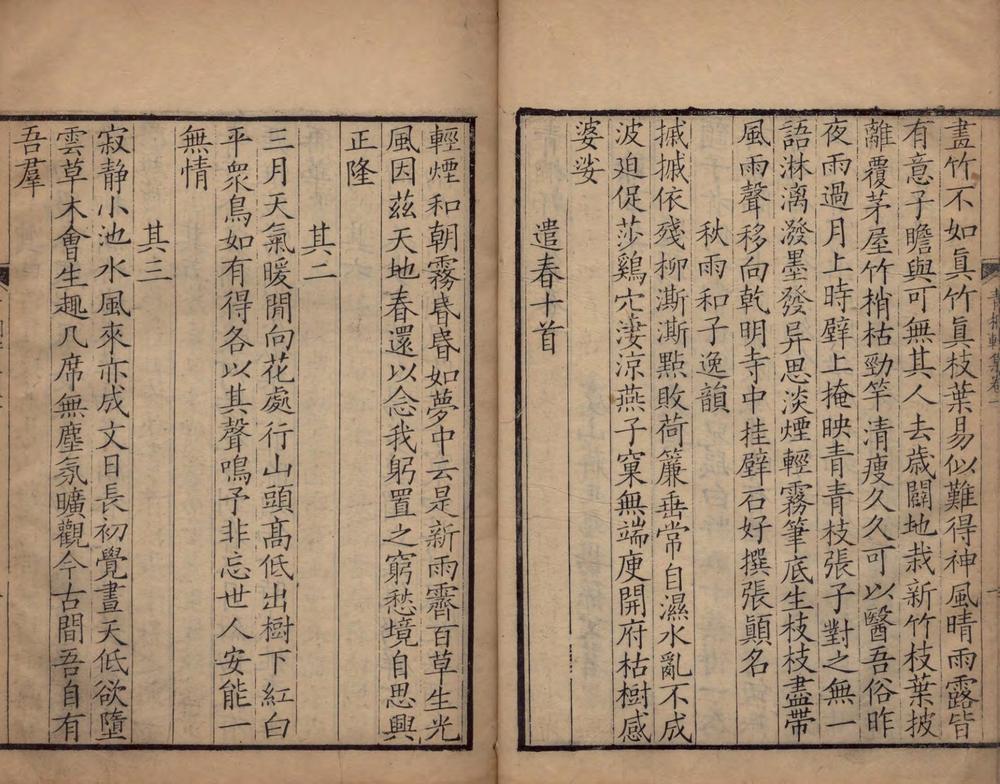 畫竹不如眞竹眞枝葉易似難得神風晴雨露皆
有意子瞻與可無其人去歲闢地栽新竹枝葉披
離覆茅屋竹梢枯勁竿清瘦久久可以醫吾俗昨
夜雨過月上時壁上掩映青青枝張子對之無一
語淋漓潑墨發异思淡煙輕霧筆底生枝枝盡帶
風雨聲移向乾明寺中挂壁石好撰張顚名
秋雨和子逸韻
摵摵依殘柳澌澌點敗荷簾垂常自濕水亂不成
波迫促莎鷄穴淒涼燕子窠無端庾開府枯樹感
婆娑
遣春十首
輕煙和朝霧昏昏如夢中云是新雨霽百草生光
風因茲天地春還以念我躬置之窮愁境自思興
正隆
其二
三月天氣暖閒向花處行山頭高低出樹下紅白
平衆鳥如有得各以其聲鳴予非忘世人安能一
無情
其三
寂靜小池水風來亦成文日長初覺晝天低欲墮
雲草木會生趣几席無塵氛曠觀今古間吾自有
吾羣